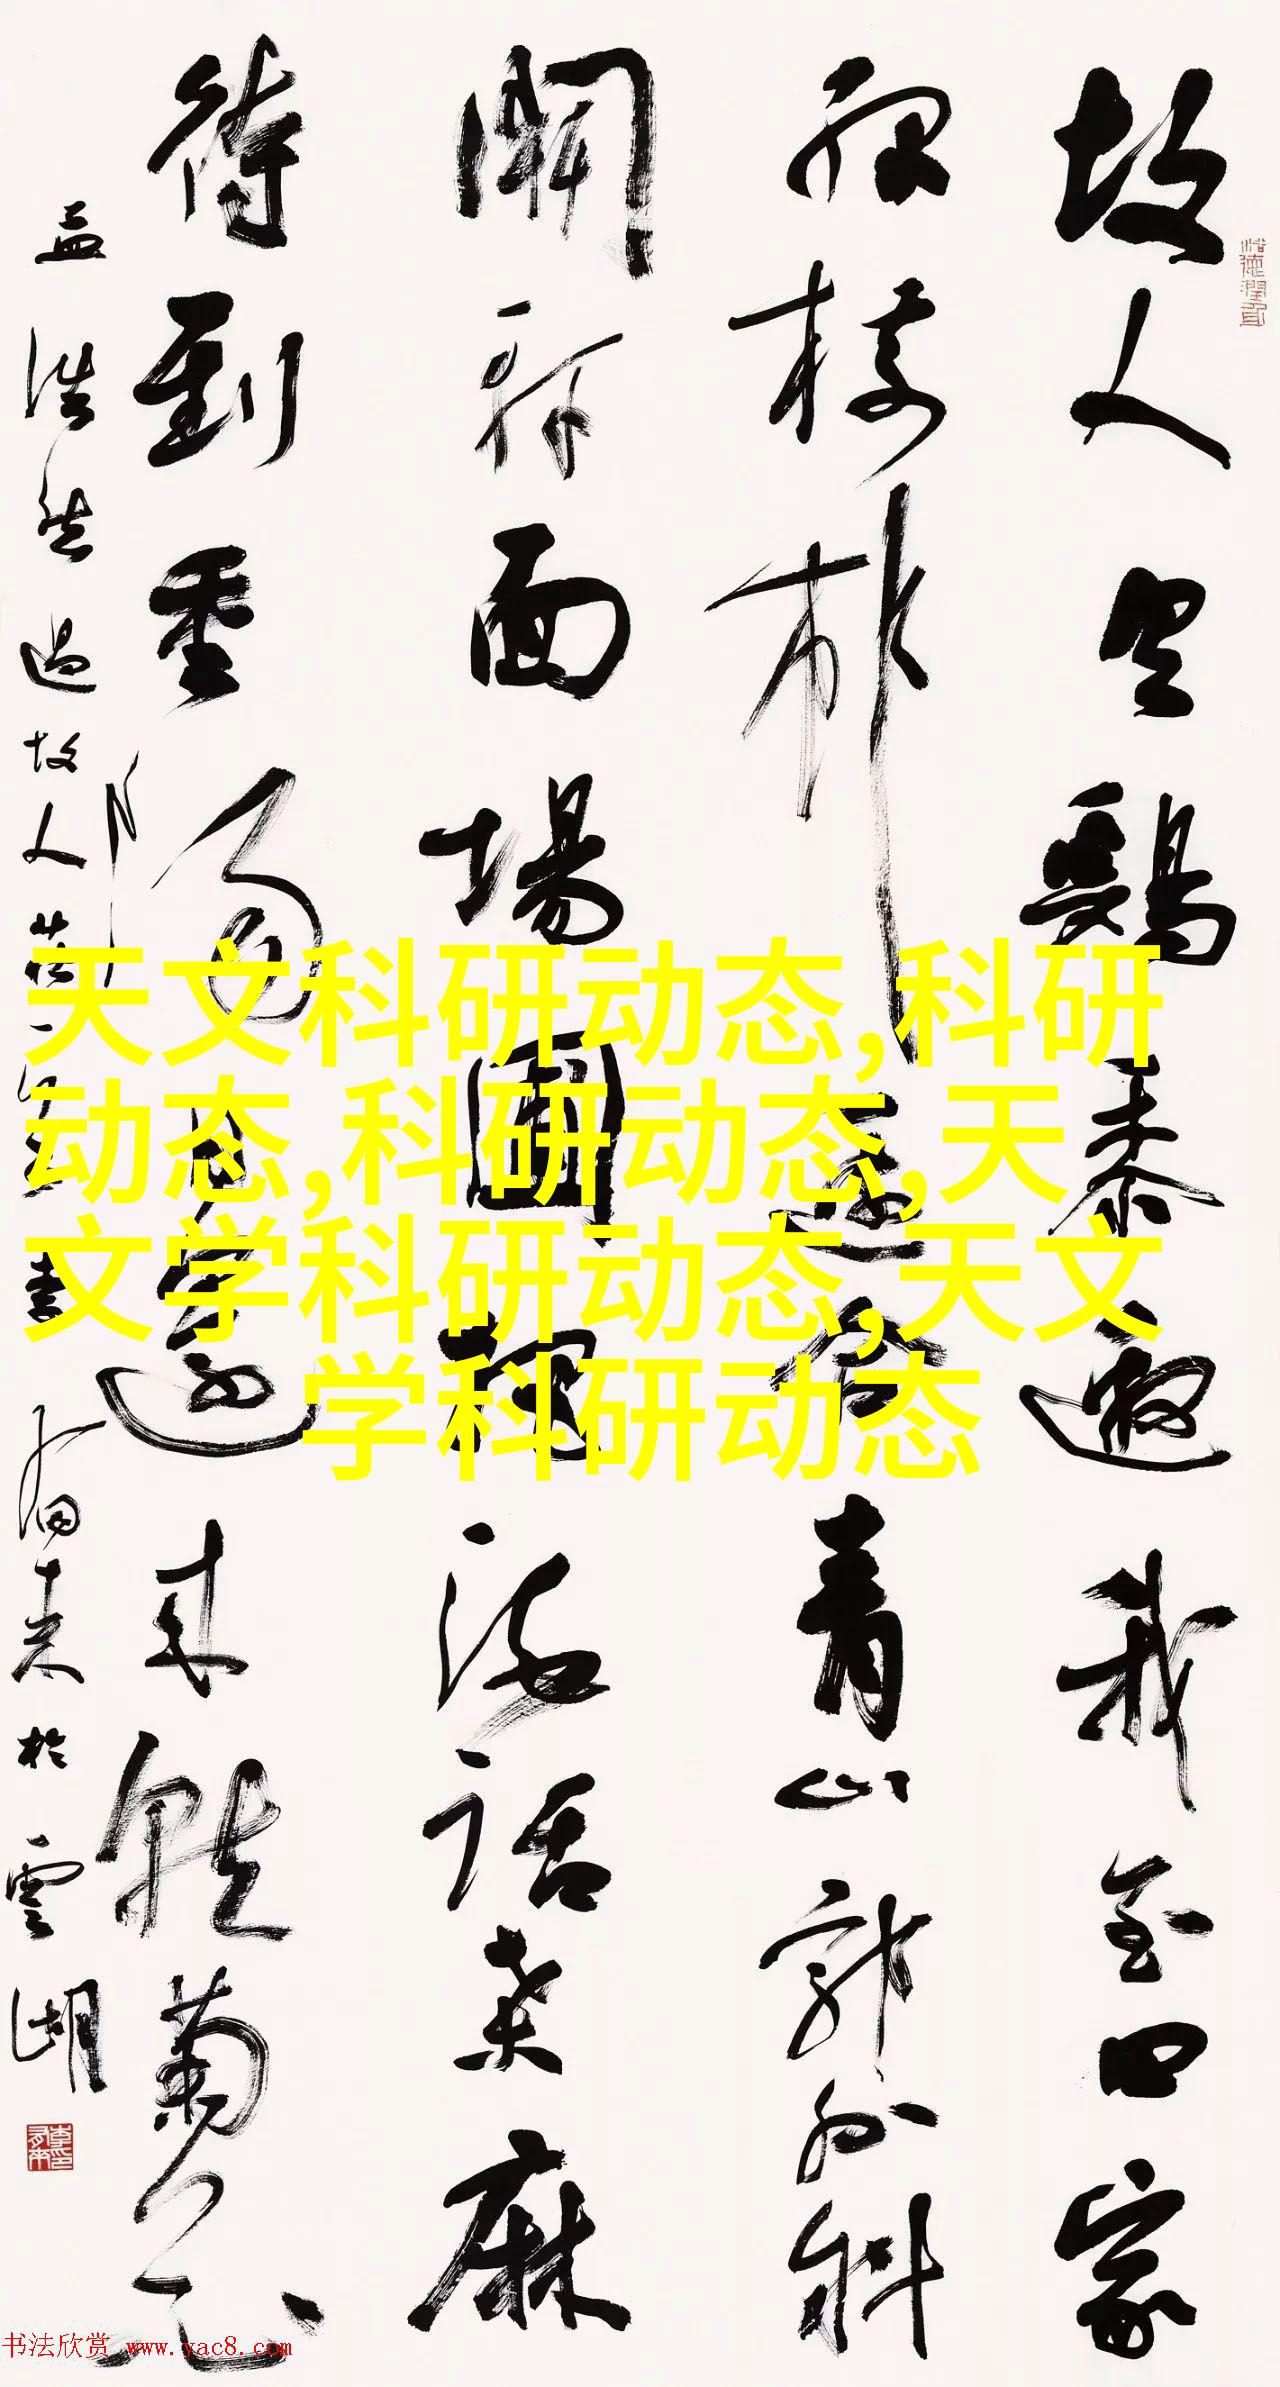 故人具鷄黍邀我至田家
緑樹村邊合青山郭外斜
開軒面場圃把酒話桑麻
待到重陽日還來就菊花
孟浩然過故人莊
有來於雲湖
天文科研动态,科研
动态,科研动态,天
文学科研动态,天文
学科研动态
书法欣赏 www.yac8.com